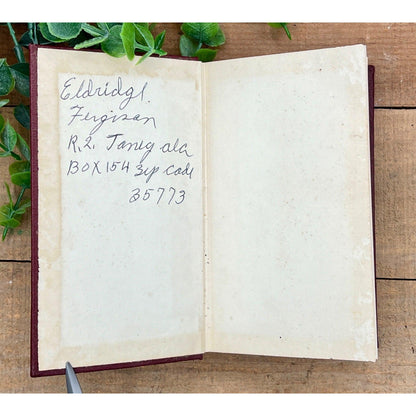 Eldridge.
Fergison
R, 2. Toney ala
BOX 154 Zip code
35773